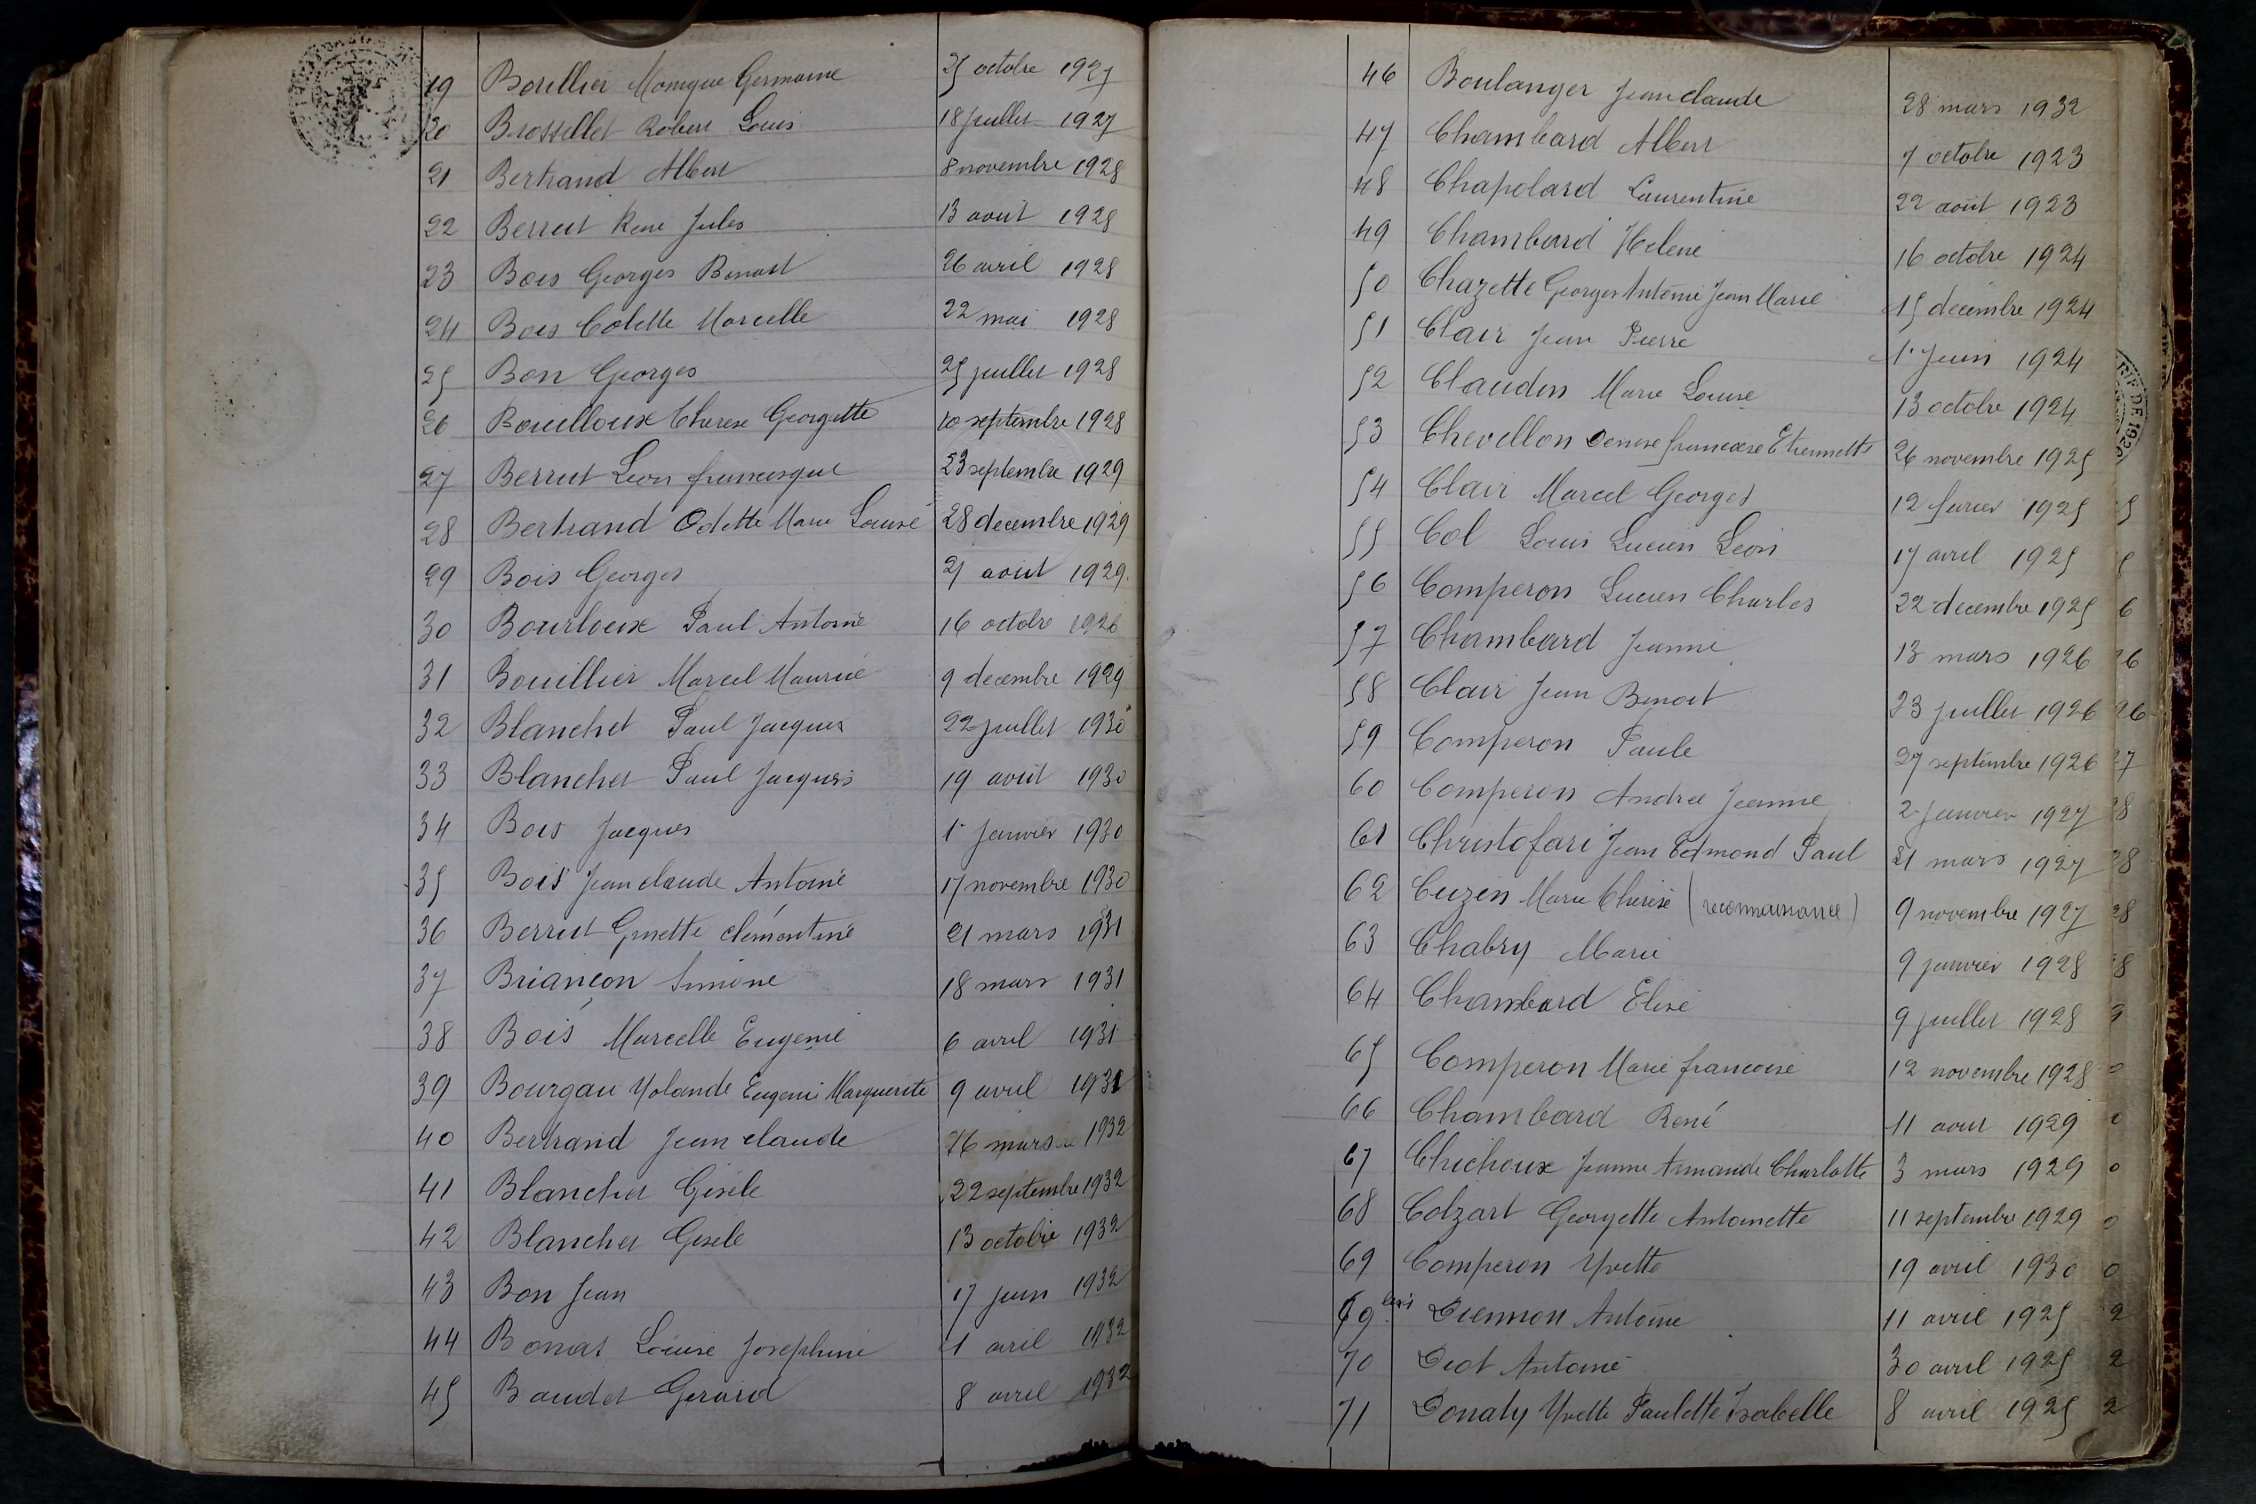 19 Bouillier Monique Germaine 25 octobre 1927
20 Brossellet Robert Louis 18 juillet 1927
21 Bertrand Albert 8 novembre 1928
22 Berrut Rene Jules 13 août 1928
23 Bois Georges Benoit 26 avril 1928
24 Bois Colette Marcelle 22 mai 1928
25 Bon Georges 25 juillet 1928
26 Bouilloux Therese Georgette 10 septembre 1928
27 Berrut Leon francisque 23 septembre 1929
28 Bertrand Odette Marie Louise 28 decembre 1929
29 Bois Georges 21 août 1929
30 Bourloux Paul Antoine 16 octobre 1926
31 Bouillier Marcel Maurice 9 decembre 1929
32 Blanchet Paul Jacques 22 juillet 1930
33 Blanchet Paul Jacques 19 août 1930
34 Bois Jacques 1r janvier 1930
35 Bois Jean claude Antoine 17 novembre 1930
36 Berrut Ginette clémentine 21 mars 1931
37 Briançon Simone 18 mars 1931
38 Bois Marcelle Eugenie 6 avril 1931
39 Bourgau Yolande Eugenie Marguerite 9 avril 1931
40 Bertrand Jean claude 16 mars 1932
41 Blanchet Gisele 22 septembre 1932
42 Blanchet Gisele 13 octobre 1932
43 Bon Jean 17 juin 1932
44 Bonas Louise Josephine 1 avril 1932
45 Baudet Gerard 8 avril 1932
46 Boulanger Jean claude 28 mars 1932
47 Chambard Albert 7 octobre 1923
48 Chapolard Laurentine 22 août 1923
49 Chambard Helene 16 octobre 1924
50 Chazette Georges Antoine Jean Marie 15 decembre 1924
51 Clair Jean Pierre 1r Juin 1924
52 Claudin Marie Louise 13 octobre 1924
53 Chevellon Denise francoise Etiennette 26 novembre 1925
54 Clair Marcel Georges 12 fevrier 1925
55 Col Louis Lucien Leon 17 avril 1925
56 Comperon Lucien Charles 22 decembre 1925
57 Chambard Jeanne 13 mars 1926
58 Clair Jean Benoit 23 juillet 1926
59 Comperon Paule 27 septembre 1926
60 Comperon Andree Jeanne 2 janvier 1927
61 Christofari Jean Edmond Paul 21 mars 1927
62 Cuzin Marie Therese (reconnaissance) 9 novembre 1927
63 Chabry Marie 9 janvier 1928
64 Chambard Elise 9 juillet 1928
65 Comperon Marie francoise 12 novembre 1928
66 Chambard René 11 aout 1929
67 Chichoux Jeanne Armande Charlotte 3 mars 1929
68 Colzart Georgette Antoinette 11 septembre 1929
69 Comperon Yvette 19 avril 1930
69 bis Diennon Antoine 11 avril 1925
70 Diot Antoine 30 avril 1925
71 Donaty Yvette Paulette Isabelle 8 avril 1925